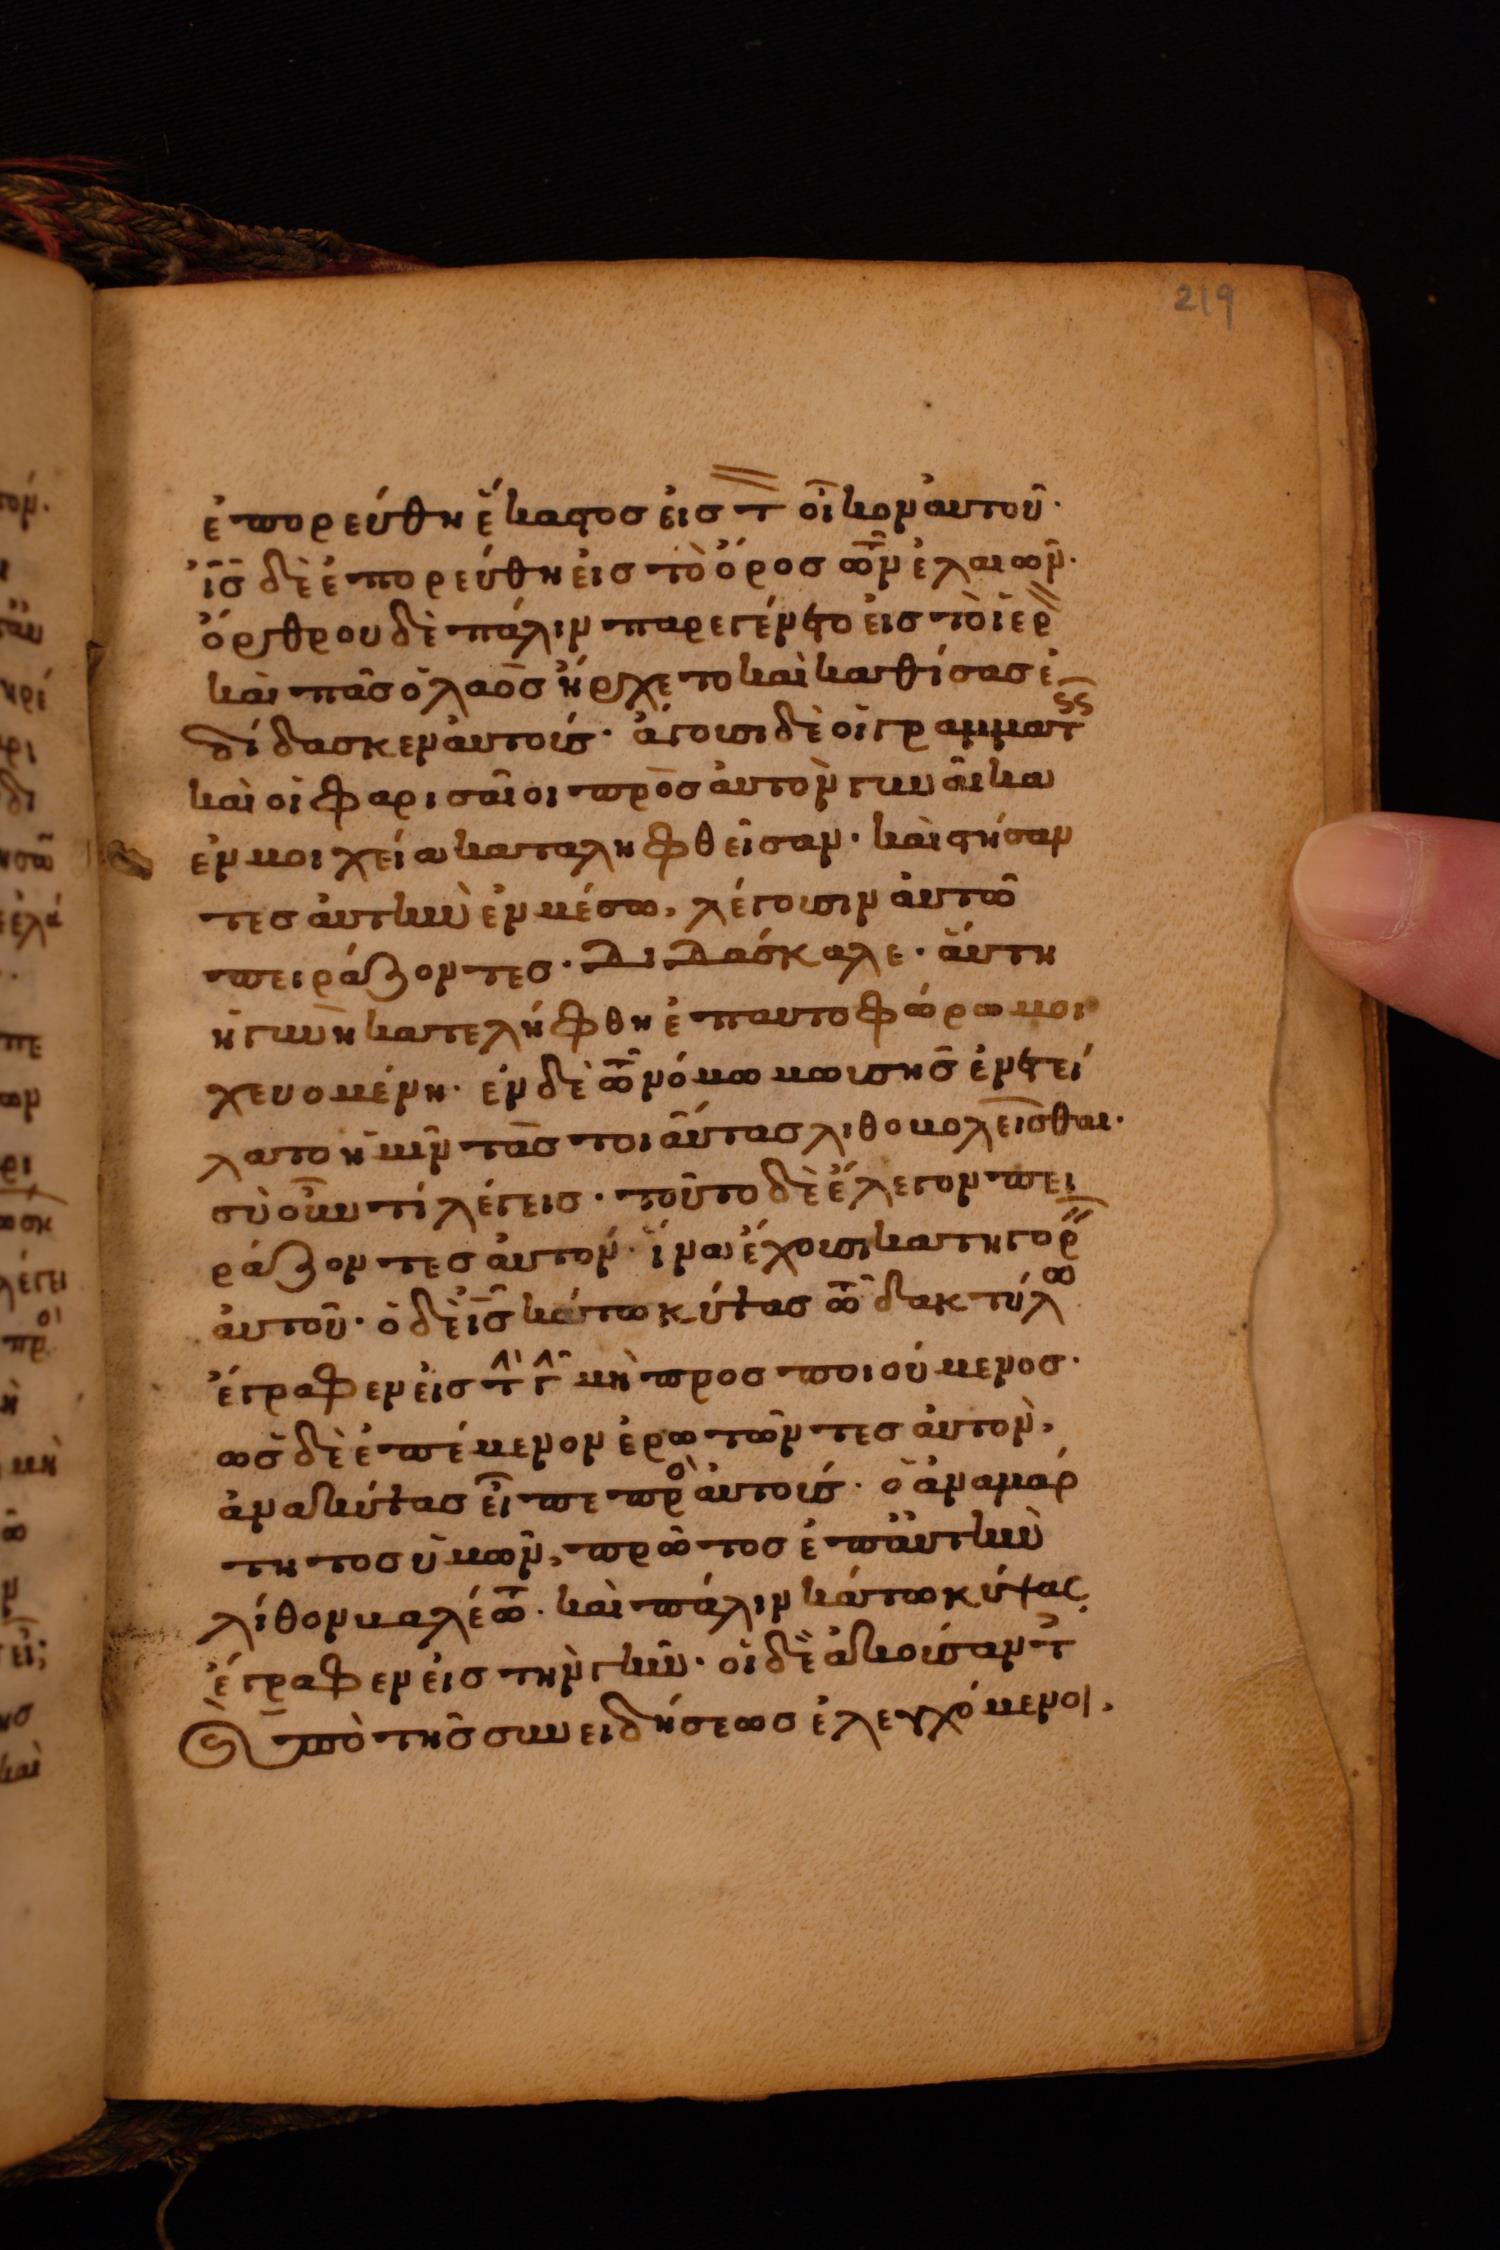 219
ἐπορεύθη ἕκαστος εἰς τ οἶκον αὐτοῦ·
ἰς δὲ ἐπορεύθη εἰς τὸ ὄρος τῶν ἐλαιῶν·
ὄρθρου δὲ πάλιν παρεγένετο εἰς τὸ ἱερ
καὶ πᾶς ὁ λαὸς ἤρχετο καὶ καθίσας ἐ
δίδασκεν αὐτούς· ἄγουσι δὲ οἱ γραμματ
καὶ οἱ φαρισαῖοι πρὸς αὐτὸν γυναῖκα
ἐν μοιχεία καταληφθεῖσαν· καὶ στήσαν
τες αὐτὴν ἐν μέσω, λέγουσιν αὐτῶ
πειράζοντες· διδάσκαλε· αὕτη
ἡ γυνὴ κατελήφθη ἐπαυτοφώρω μοι
χευομένη· ἐν δὲ τῶ νόμω μωισῆς ἐντεί
λατο ἡμῖν τὰς τοιαύτας λιθοβολεῖσθαι·
σὺ οὖν τί λέγεις· τοῦτο δὲ ἔλεγον πει
ράζοντες αὐτόν· ἵνα ἔχουσι κατηγορ
αὐτοῦ· ὁ δὲ ις κάτω κύψας τῶ δακτύλω
ἔγραφεν εἰς τ γ μὴ προσποιούμενος·
ὡς δὲ ἐπέμενον ἐρωτῶντες αὐτὸν,
ἀνακύψας εἶπε πρὸ αὐτούς· ὁ ἀναμάρ
τητος ὑμῶν, πρῶτος ἐπ αὐτὴν
λίθον βαλέτω· καὶ πάλιν κάτω κύψας
ἔγραφεν εἰς τὴν γῆν· οἱ δὲ ἀκούσαντ
ὑπὸ τῆς συνειδήσεως ἐλεγχόμενοι,